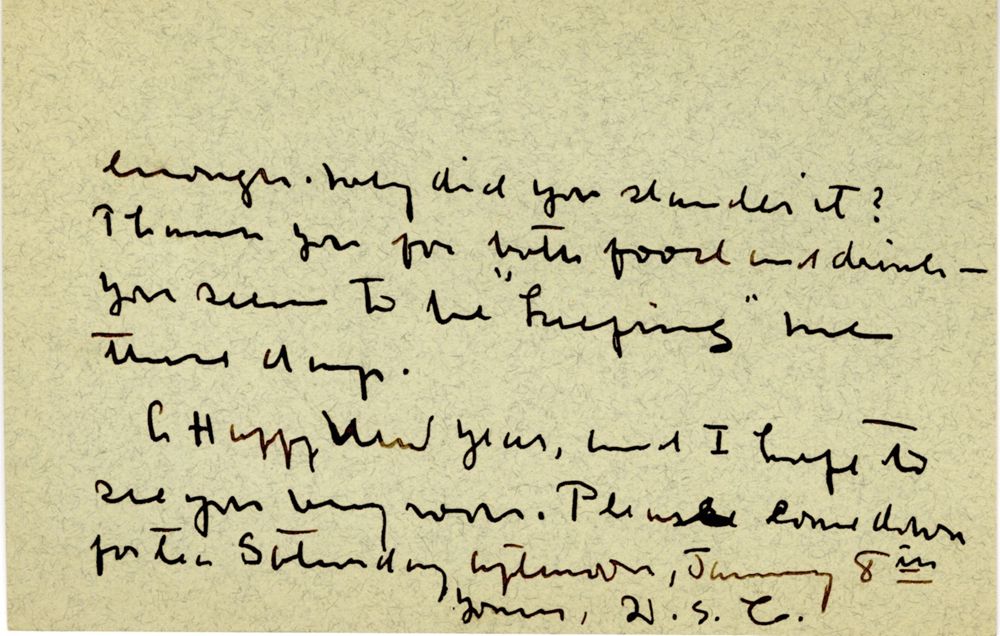 enough. Why did you slander it?
Thank you for both food and drink —
you seem to be "keeping" me
these days.
A Happy New Year, and I hope to
see you very soon. Please come down
for tea Saturday afternoon, January 8th
Yours, W. S. C.